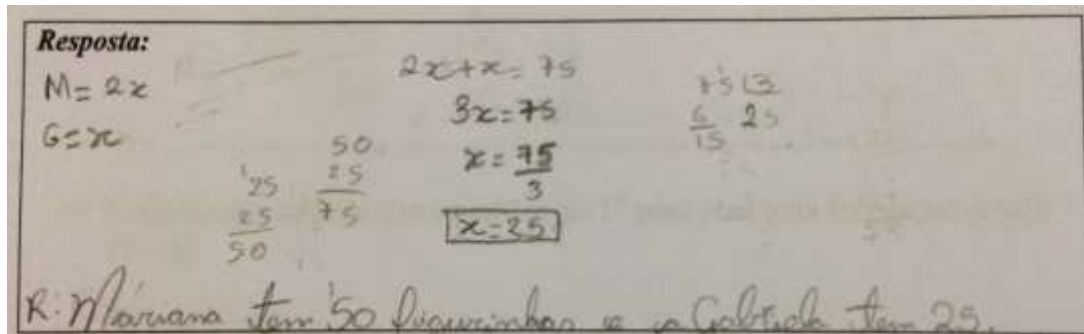 Resposta:
M= 2x
G=x
2x+x= 75
3x=75
x= 75
3
x=25
75 3
6 25
15
25
25
50
50
25
75
R: Mariana tem 50 figurinhas e a Gabriela tem 25